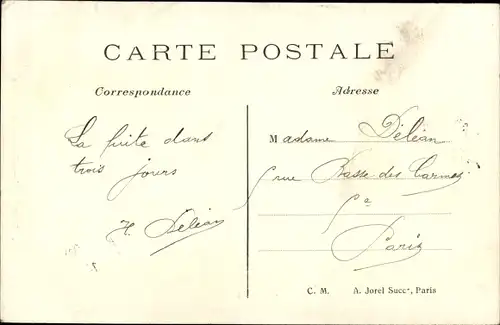 CARTE POSTALE
Correspondance
Adresse
La suite dans
trois jours
H. Deléan
Madame Deléan
5 rue Basse des Carmes
5e
Paris
C. M. A. Jorel Succr, Paris